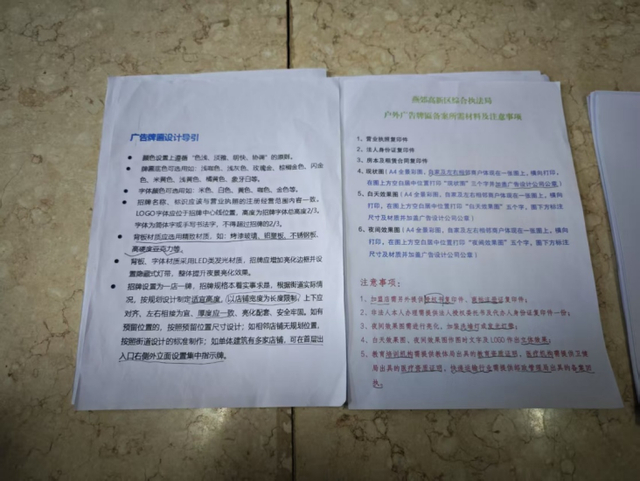 广告牌匾设计导引
颜色设置上遵循“色浅、淡雅、明快、协调”的原则。
牌匾底色可选用如：浅咖色、浅灰色、玫瑰金、棕榈金色、闪金
色、米黄色、浅黄色、橘黄色、象牙白等。
字体颜色可选用如：米色、白色、黄色、咖色、金色等。
招牌名称、标识应该与营业执照的注册经营范围内容一致。
LOGO字体应位于招牌中心线位置，高度为招牌字体总高度2/3。
字体为固体字或手写书法字，不得超过招牌的2/3。
背板材质应选用精致材质，如：烤漆玻璃、铝塑板、不锈钢板、
高硬度亚克力等。
背板、字体材质采用LED类发光材质，招牌应增加亮化边框并设
置隐藏式灯带，整体提升夜景亮化效果。
招牌设置为一店一牌，招牌规格本着实事求是，根据街道实际情
况，按规划设计制定适宜高度，以店铺宽度为长度限制，上下应
对齐、左右相接为宜、厚度应一致、亮化配套、安全牢固。如有
预留位置的，按照预留位置尺寸设计；如相邻店铺无规划位置，
按照街道设计的标准制作；如单体建筑有多家店铺，可在首层出
入口右侧外立面设置集中指示牌。
燕郊高新区综合执法局
户外广告牌匾备案所需材料及注意事项
1、营业执照复印件
2、法人身份证复印件
3、房本及租赁合同复印件
4、现状图（A4 全景彩图，自家及左右相邻商户体现在一张图上，横向打
印，在图上方空白居中位置打印“现状图”三个字并加盖广告设计公司公章）
5、白天效果图（A4 全景彩图，自家及左右相邻商户体现在一张图上，横向
打印，在图上方空白居中位置打印“白天效果图”五个字，图下方标注
尺寸及材质并加盖广告设计公司公章）
6、夜间效果图（A4 全景彩图，自家及左右相邻商户体现在一张图上，横向
打印，在图上方空白居中位置打印“夜间效果图”五个字，图下方标注
尺寸及材质并加盖广告设计公司公章）
注意事项：
1、加盟店需另外提供授权书复印件、商标注册证复印件；
2、非法人本人办理需提供法人授权委托书及代办人身份证复印件一份；
3、夜间效果图需进行亮化，如加洗墙灯或发光灯箱；
4、白天效果图、夜间效果图作图时文字及 LOGO 作出立体效果；
5、教育培训机构需提供教体局出具的教育资质证明，医疗机构需提供卫健
局出具的医疗资质证明，快递运输行业需提供邮政管理局出具的备案回
执。